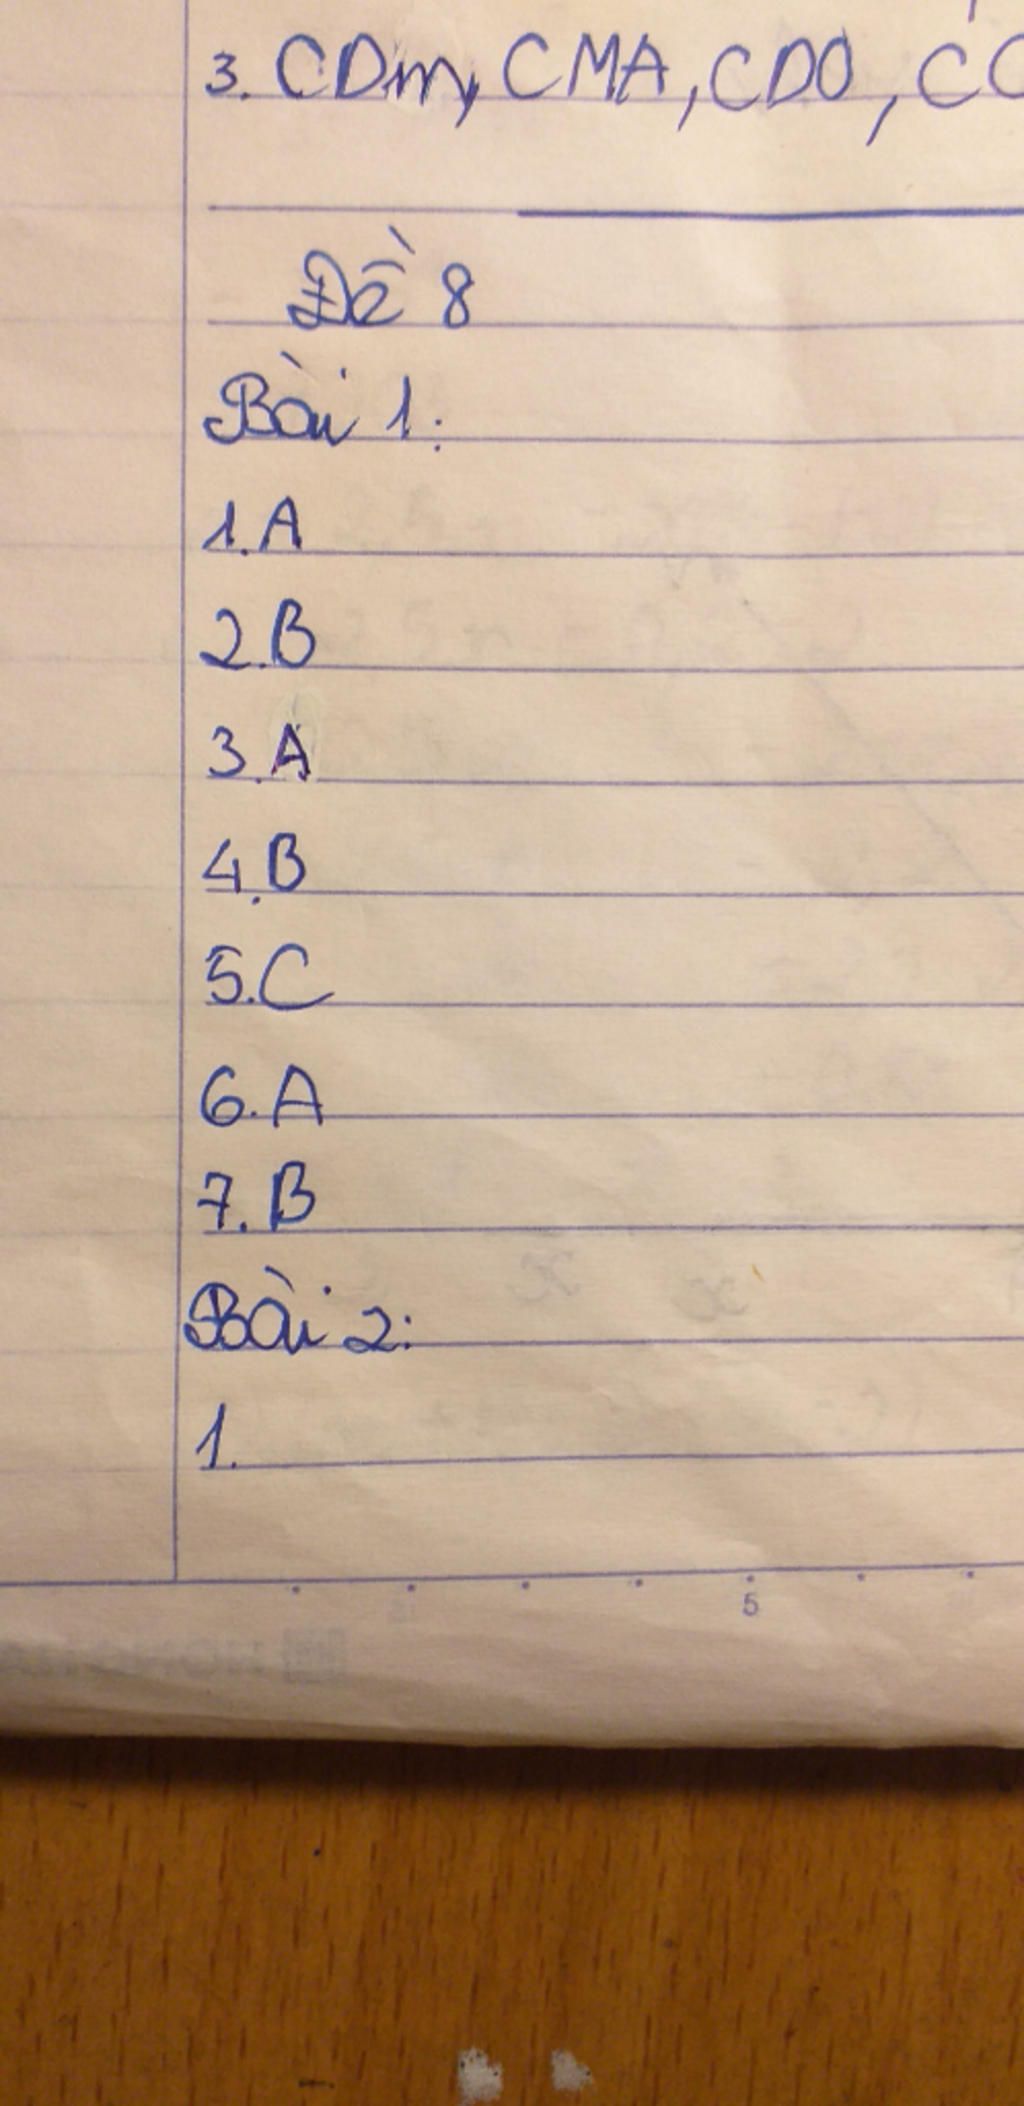 3. CDm, CMA, CDO, CC
Đề 8
Bài 1:
1. A
2. B
3. A
4. B
5. C
6. A
7. B
Bài 2:
1.
5